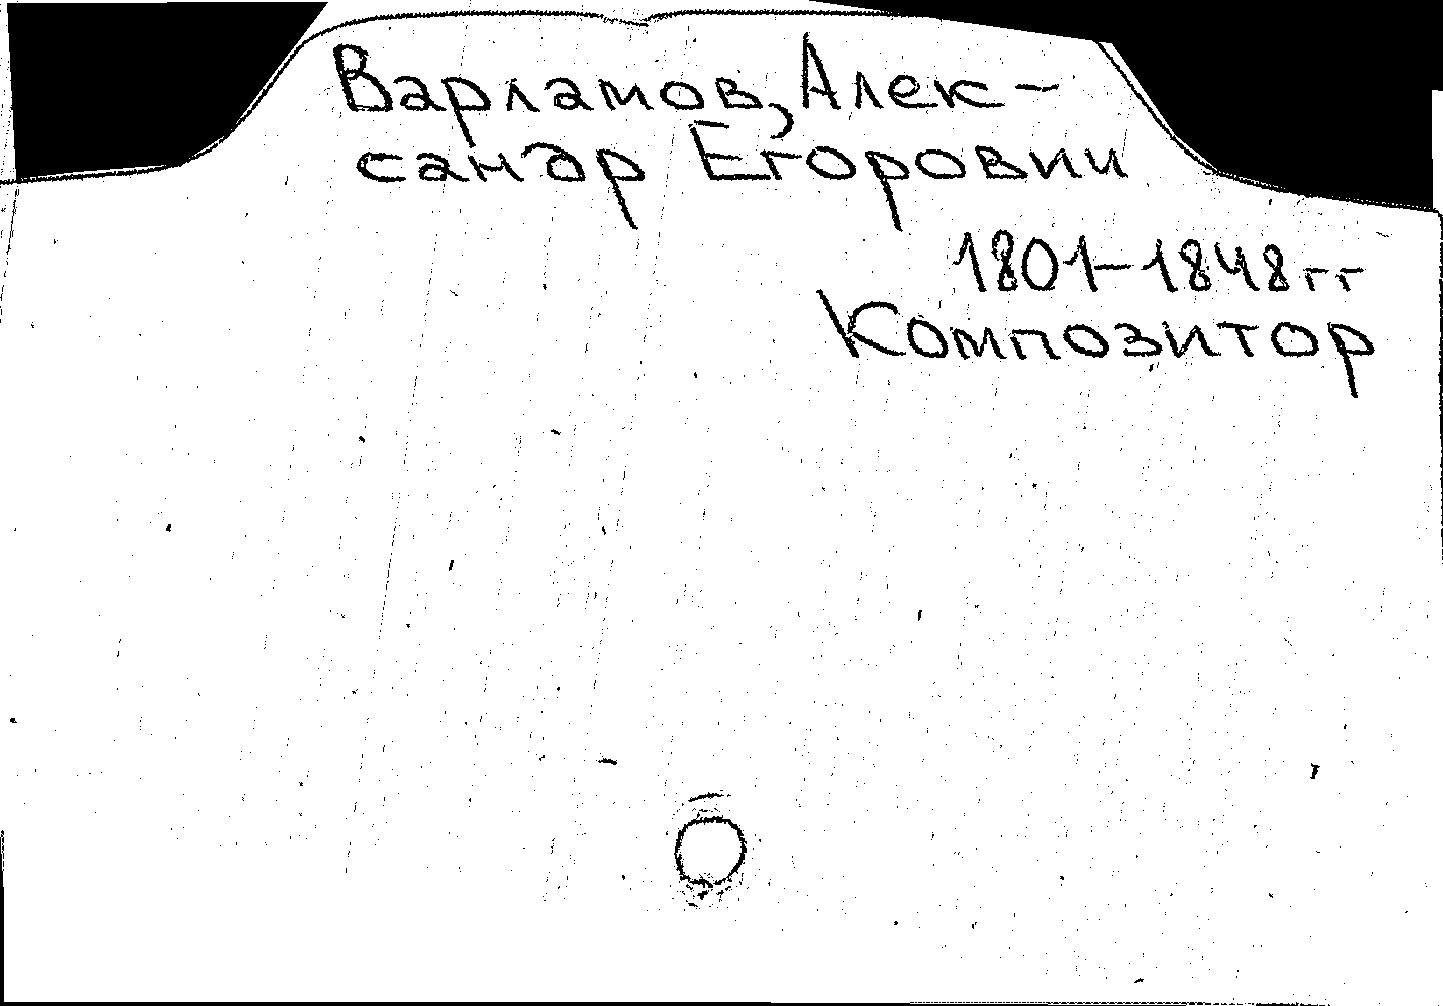 Варламов, Алек-
сандр Егорович
1801-1848 гг
Композитор